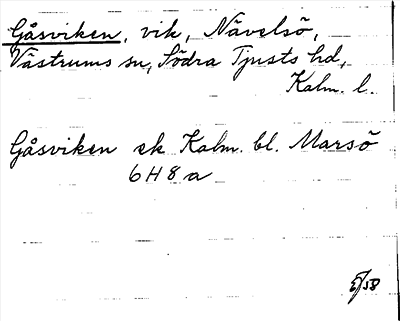 Gåsviken, vik, Nävelsö,
Västrums sn, Södra Tjusts hd,
Kalm. l.
Gåsviken ek Kalm. bl. Marsö
6H8a